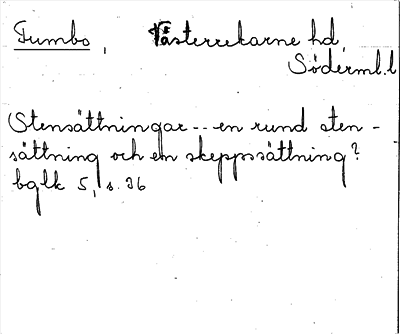 Tumbo, Västerrekarne hd,
Söderml.l
Stensättningar -- en rund sten-
sättning och en skeppssättning?
bglk 5, s. 36